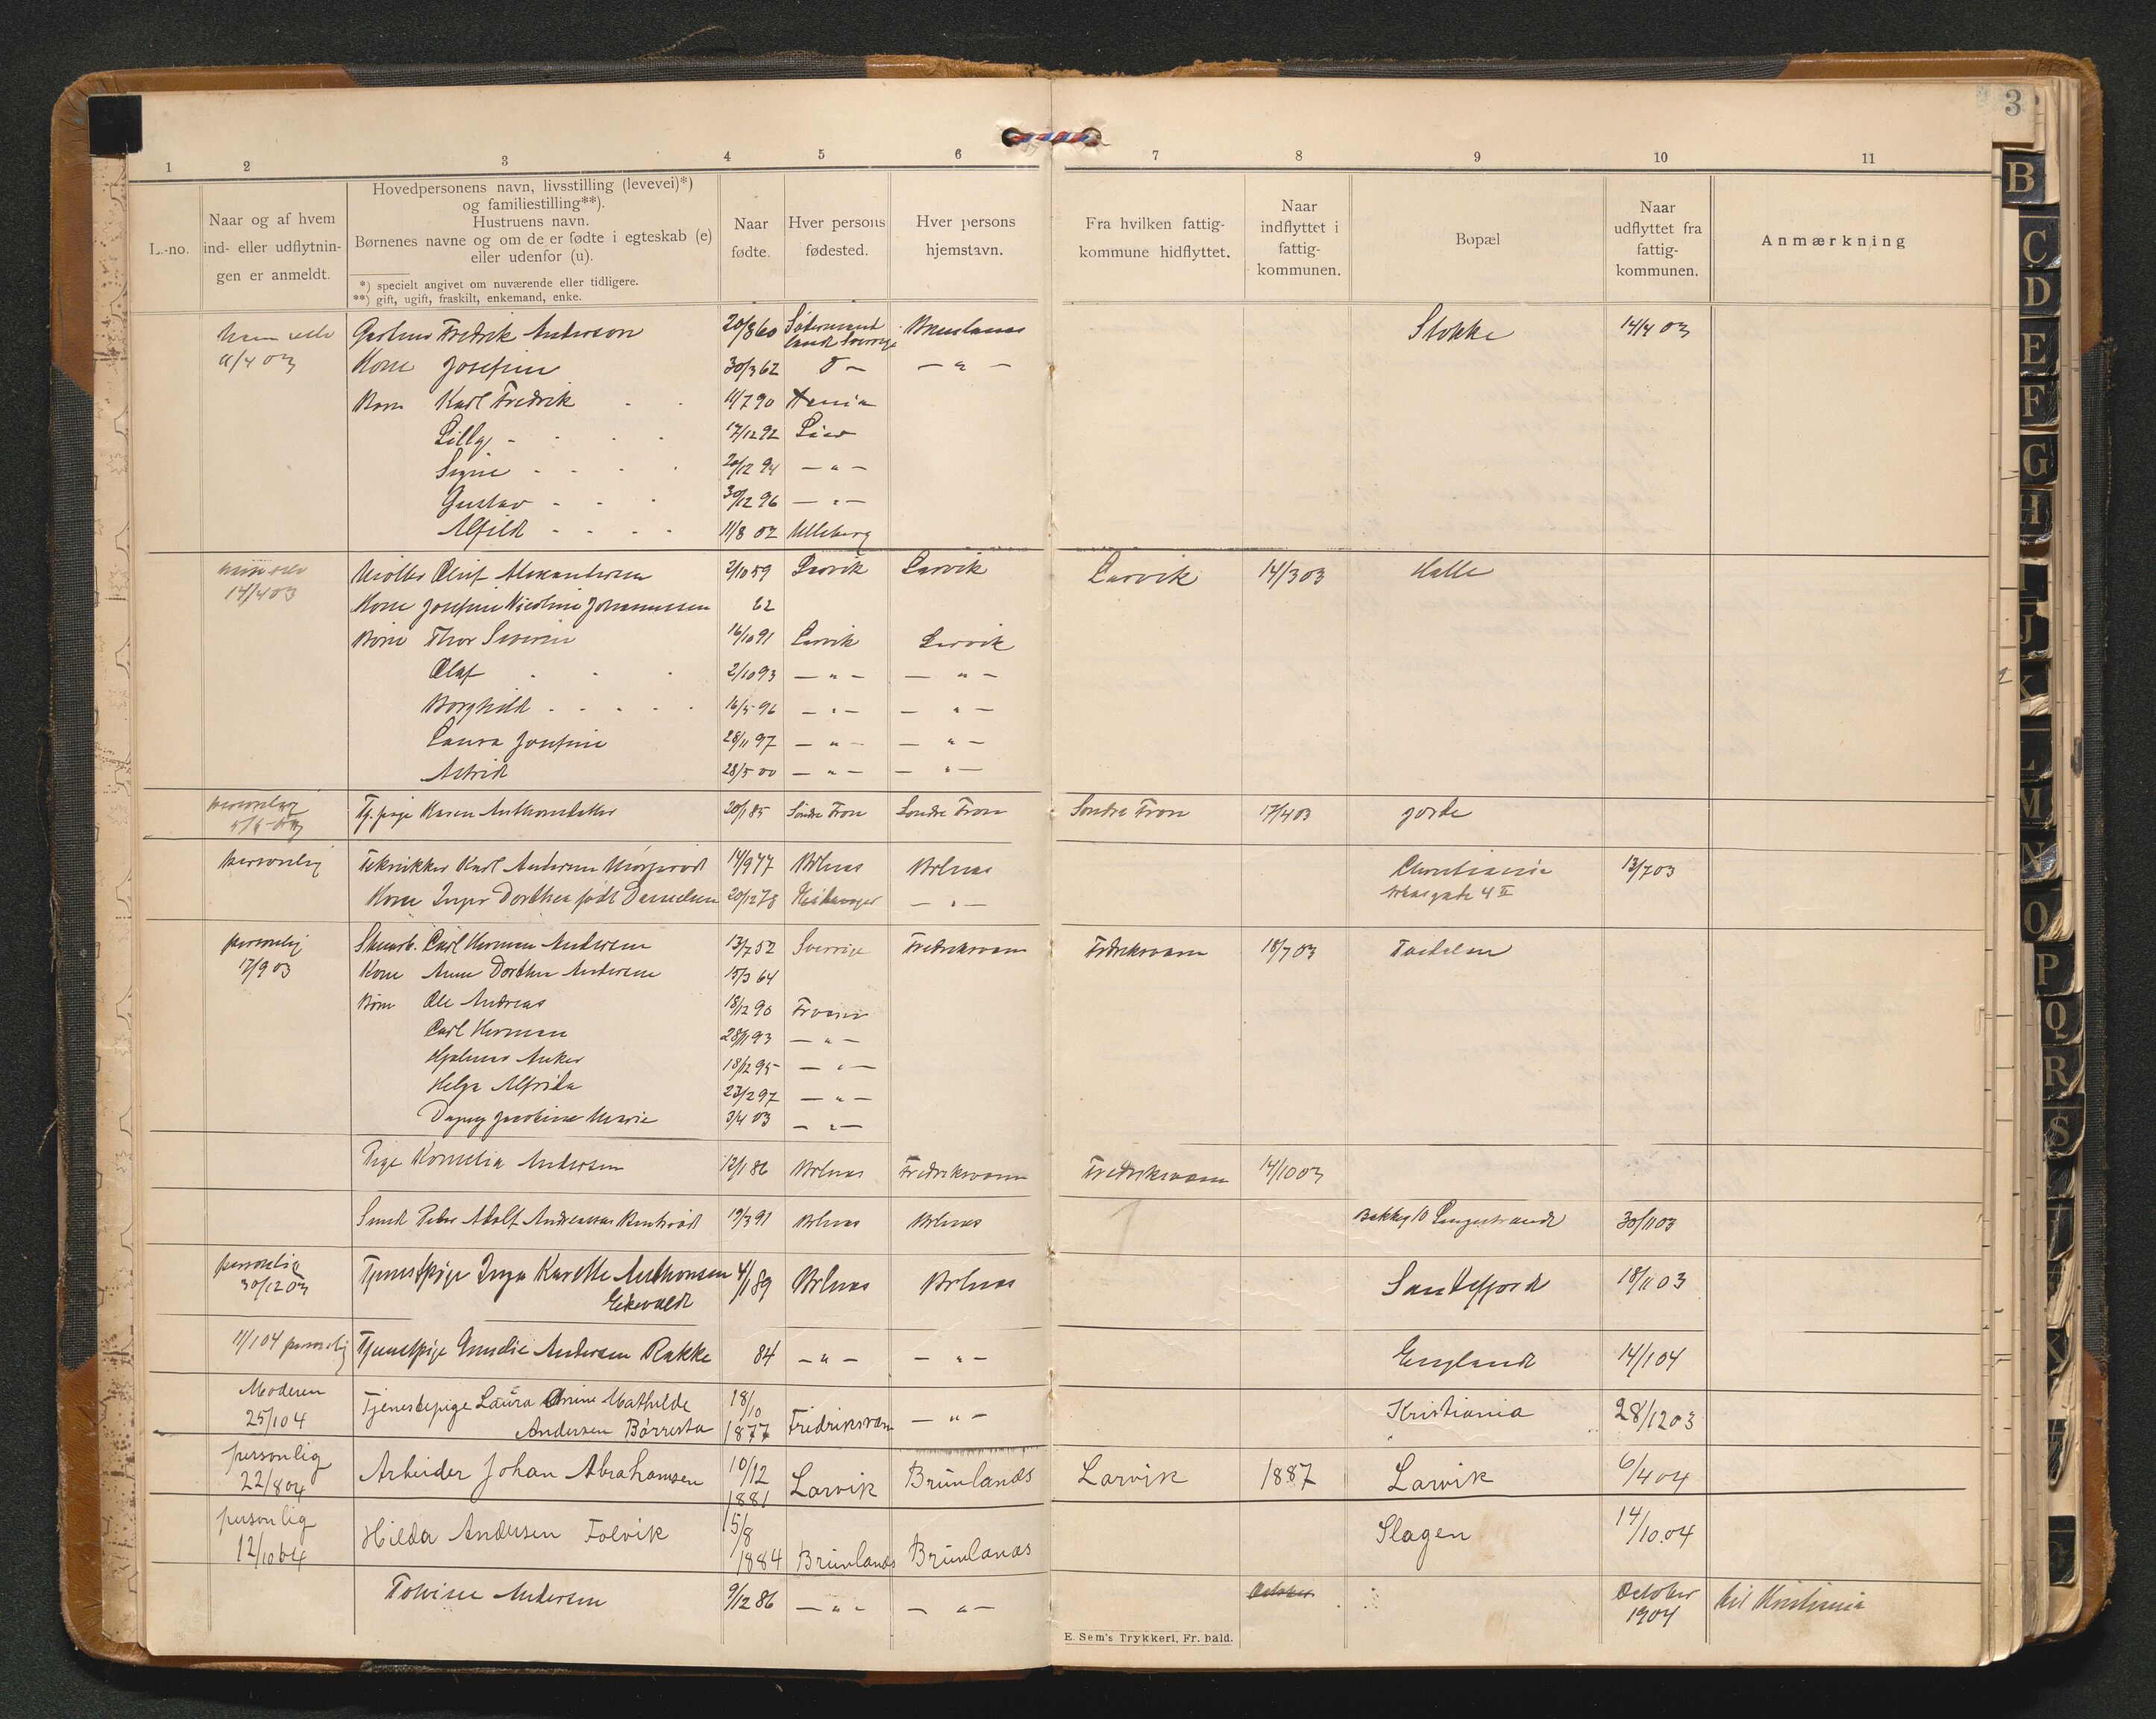 3
1 2 3 4 5 6 7 8 9 10 11
L.-no.
Naar og af hvem
ind- eller udflytnin-
gen er anmeldt.
Hovedpersonens navn, livsstilling (levevei)*)
og familiestilling**).
Hustruens navn.
Børnenes navne og om de er fødte i egteskab (e)
eller udenfor (u).
*) specielt angivet om nuværende eller tidligere.
**) gift, ugift, fraskilt, enkemand, enke.
Naar
fødte.
Hver persons
fødested.
Hver persons
hjemstavn.
Fra hvilken fattig-
kommune hidflyttet.
Naar
indflyttet i
fattig-
kommunen.
Bopæl
Naar
udflyttet fra
fattig-
kommunen.
Anmærkning
Fredrik Anderson 20/8 60 Brunlanæs Stokke 14/4 03
11/4 03 Kone Josefine 30/3 62 d - - " -
Børn Karl Fredrik 11/7 90
Lilly 17/12 92 Lier
Signe 20/12 94 - " -
Gustav 30/12 96 - " -
Alfild 11/8 02 Ulleberg
Olaf Alexandersen 2/10 59 Larvik Larvik Larvik 14/3 03 Halle
14/4 03 Kone Josefine Nicoline Johannessen 62
Børn Thor Severin 16/10 91 Larvik Larvik
Olaf 2/10 93 - " - - " -
Borghild 16/5 96 - " - - " -
Laura Josefine 28/11 97 - " - - " -
Astrid 28/5 00 - " - - " -
personlig Tj. pige Karen 20/1 85 Søndre Fron Søndre Fron Søndre Fron 17/4 03 Jorde
personlig Teknikker Karl Andersen 14/9 77 Brlnæs Brlnæs Christiania 13/7 03
Kone Inger Dorthea født Danielsen 20/12 78 - " - 4 II
personlig Carl Herman Andersen 13/7 52 Sverrige Fredriksværn Fredriksværn 18/7 03
17/9 03 Kone Anne Dorthea Andersen 15/3 64
Børn Ole Andreas 18/12 90
Carl Herman 28/11 93 - " -
Hjalmar Anker 18/12 95 - " -
Helga Alfrida 23/2 97 - " -
Dagny Marie 3/4 03 - " -
Pige Kornelia Andersen 12/1 86 Brlnæs Fredriksværn Fredriksværn 14/10 03
Smed Peter Adolf Andreassen 19/3 91 Brlnæs Brlnæs Langestrand 30/11 03
personlig Tjenestpige Inga Karette Anthonsen 4/1 89 Brlnæs Brlnæs Sandefjord 18/11 03
30/12 03 Ekevald
11/1 04 personlig Tjenestpige Andersen Rakke 84 - " - - " - England 14/1 04
Moderen Tjenestepige Laura Anine Mathilde 18/10 Fredriksværn - " - Kristiania 28/12 03
25/1 04 Andersen Børresta 1877
personlig Arbeider Johan Abrahamsen 10/12 Larvik Brunlanæs Larvik 1887 Larvik 6/4 04
22/8 04 1881
personlig Hilda Andersen Folvik 15/8 Brunlanæs Brunlanæs Slagen 14/10.04
12/10 04 1884
Andersen 9/12 86 - " - - " - October October til Kristiania
1904
E. Sem's Trykkeri, Fr. hald.
B
C
D
E
F
G
H
I
J
K
L
M
N
O
P
Q
R
S